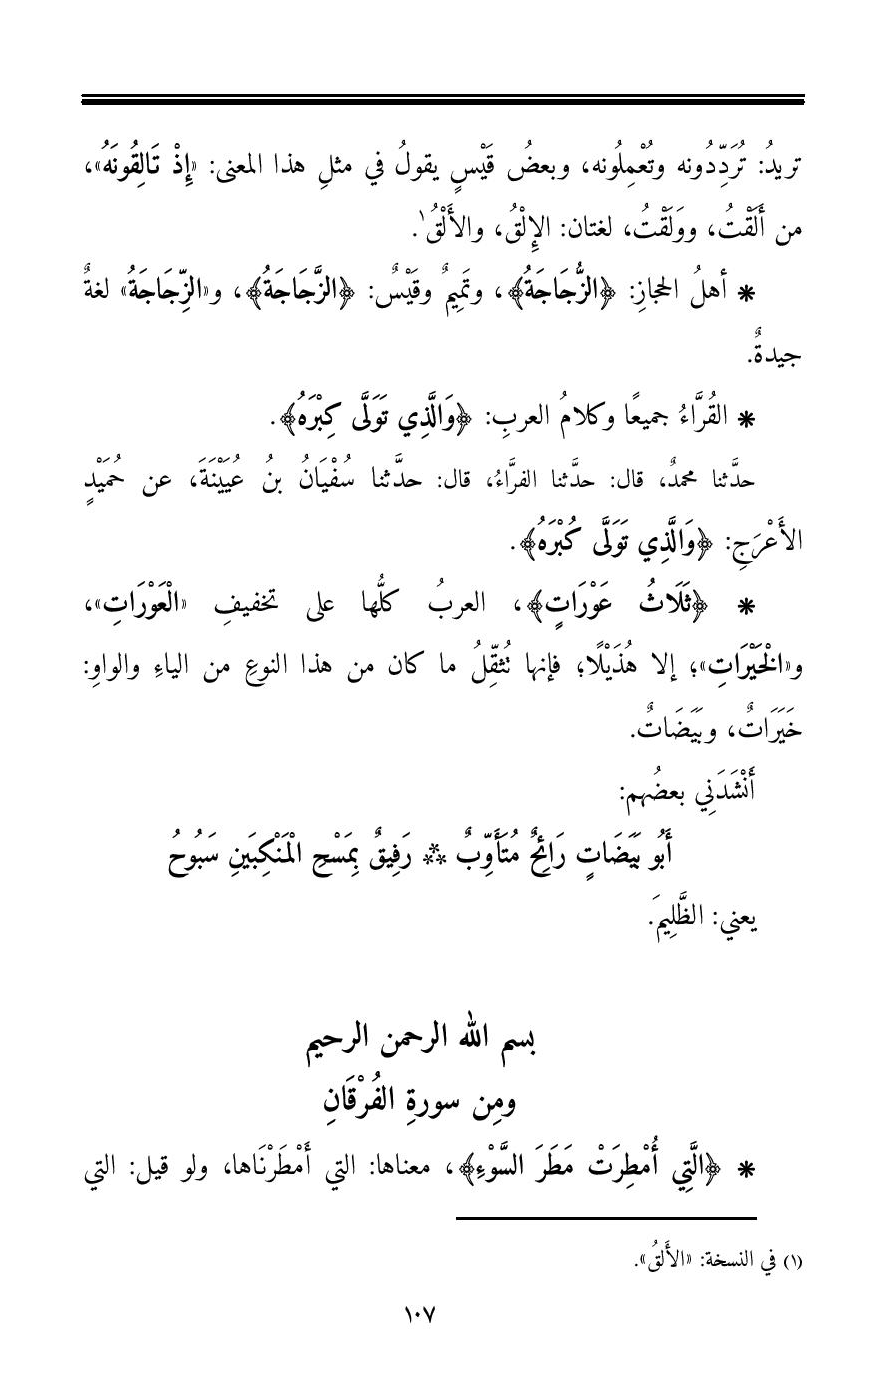 تريدُ: تُرَدِّدُونه وتُعْمِلُونه، وبعضُ قَيْسٍ يقولُ في مثلِ هذا المعنى: «إِذْ تَالِقُونَهُ»،
من أَلَقْتُ، ووَلَقْتُ، لغتان: الإِلْقُ، والأَلْقُ١.
* أهلُ الحجازِ: ﴿الزُّجَاجَةُ﴾، وتَمِيمٌ وقَيْسٌ: ﴿الزَّجَاجَةُ﴾، و«الزِّجَاجَةُ» لغةٌ
جيدةٌ.
* القُرَّاءُ جميعًا وكلامُ العربِ: ﴿وَالَّذِي تَوَلَّى كِبْرَهُ﴾.
حدَّثنا محمدٌ، قال: حدَّثنا الفرَّاءُ، قال: حدَّثنا سُفْيَانُ بنُ عُيَيْنَةَ، عن حُمَيْدٍ
الأَعْرَجِ: ﴿وَالَّذِي تَوَلَّى كُبْرَهُ﴾.
* ﴿ثَلَاثُ عَوْرَاتٍ﴾، العربُ كلُّها على تخفيفِ «الْعَوْرَاتِ»،
و«الْخَيْرَاتِ»؛ إلا هُذَيْلًا؛ فإنها تُثقِّلُ ما كان من هذا النوعِ من الياءِ والواوِ:
خَيَرَاتٌ، وبَيَضَاتٌ.
أَنْشَدَنِي بعضُهم:
أَبُو بَيَضَاتٍ رَائِحٌ مُتَأَوِّبٌ ** رَفِيقٌ بِمَسْحِ الْمَنْكِبَينِ سَبُوحُ
يعني: الظَّلِيمَ.
بسم الله الرحمن الرحيم
ومِن سورةِ الفُرْقَانِ
* ﴿الَّتِي أُمْطِرَتْ مَطَرَ السَّوْءِ﴾، معناها: التي أَمْطَرْنَاها، ولو قيل: التي
(١) في النسخة: «الأَلقُ».
١٠٧